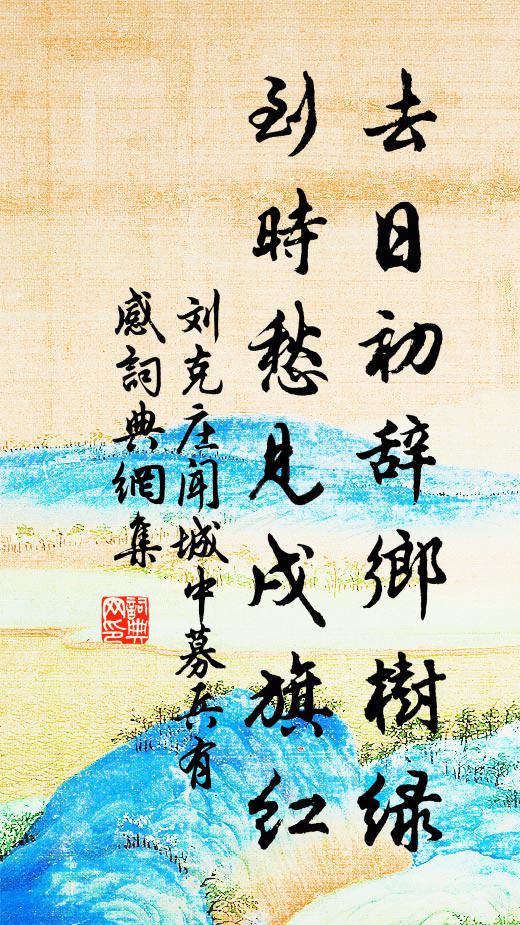 去日初辞鄉樹绿
到時愁見戍旗红
刘克庄闻城中募兵有
感詞典網集
詞典
网印